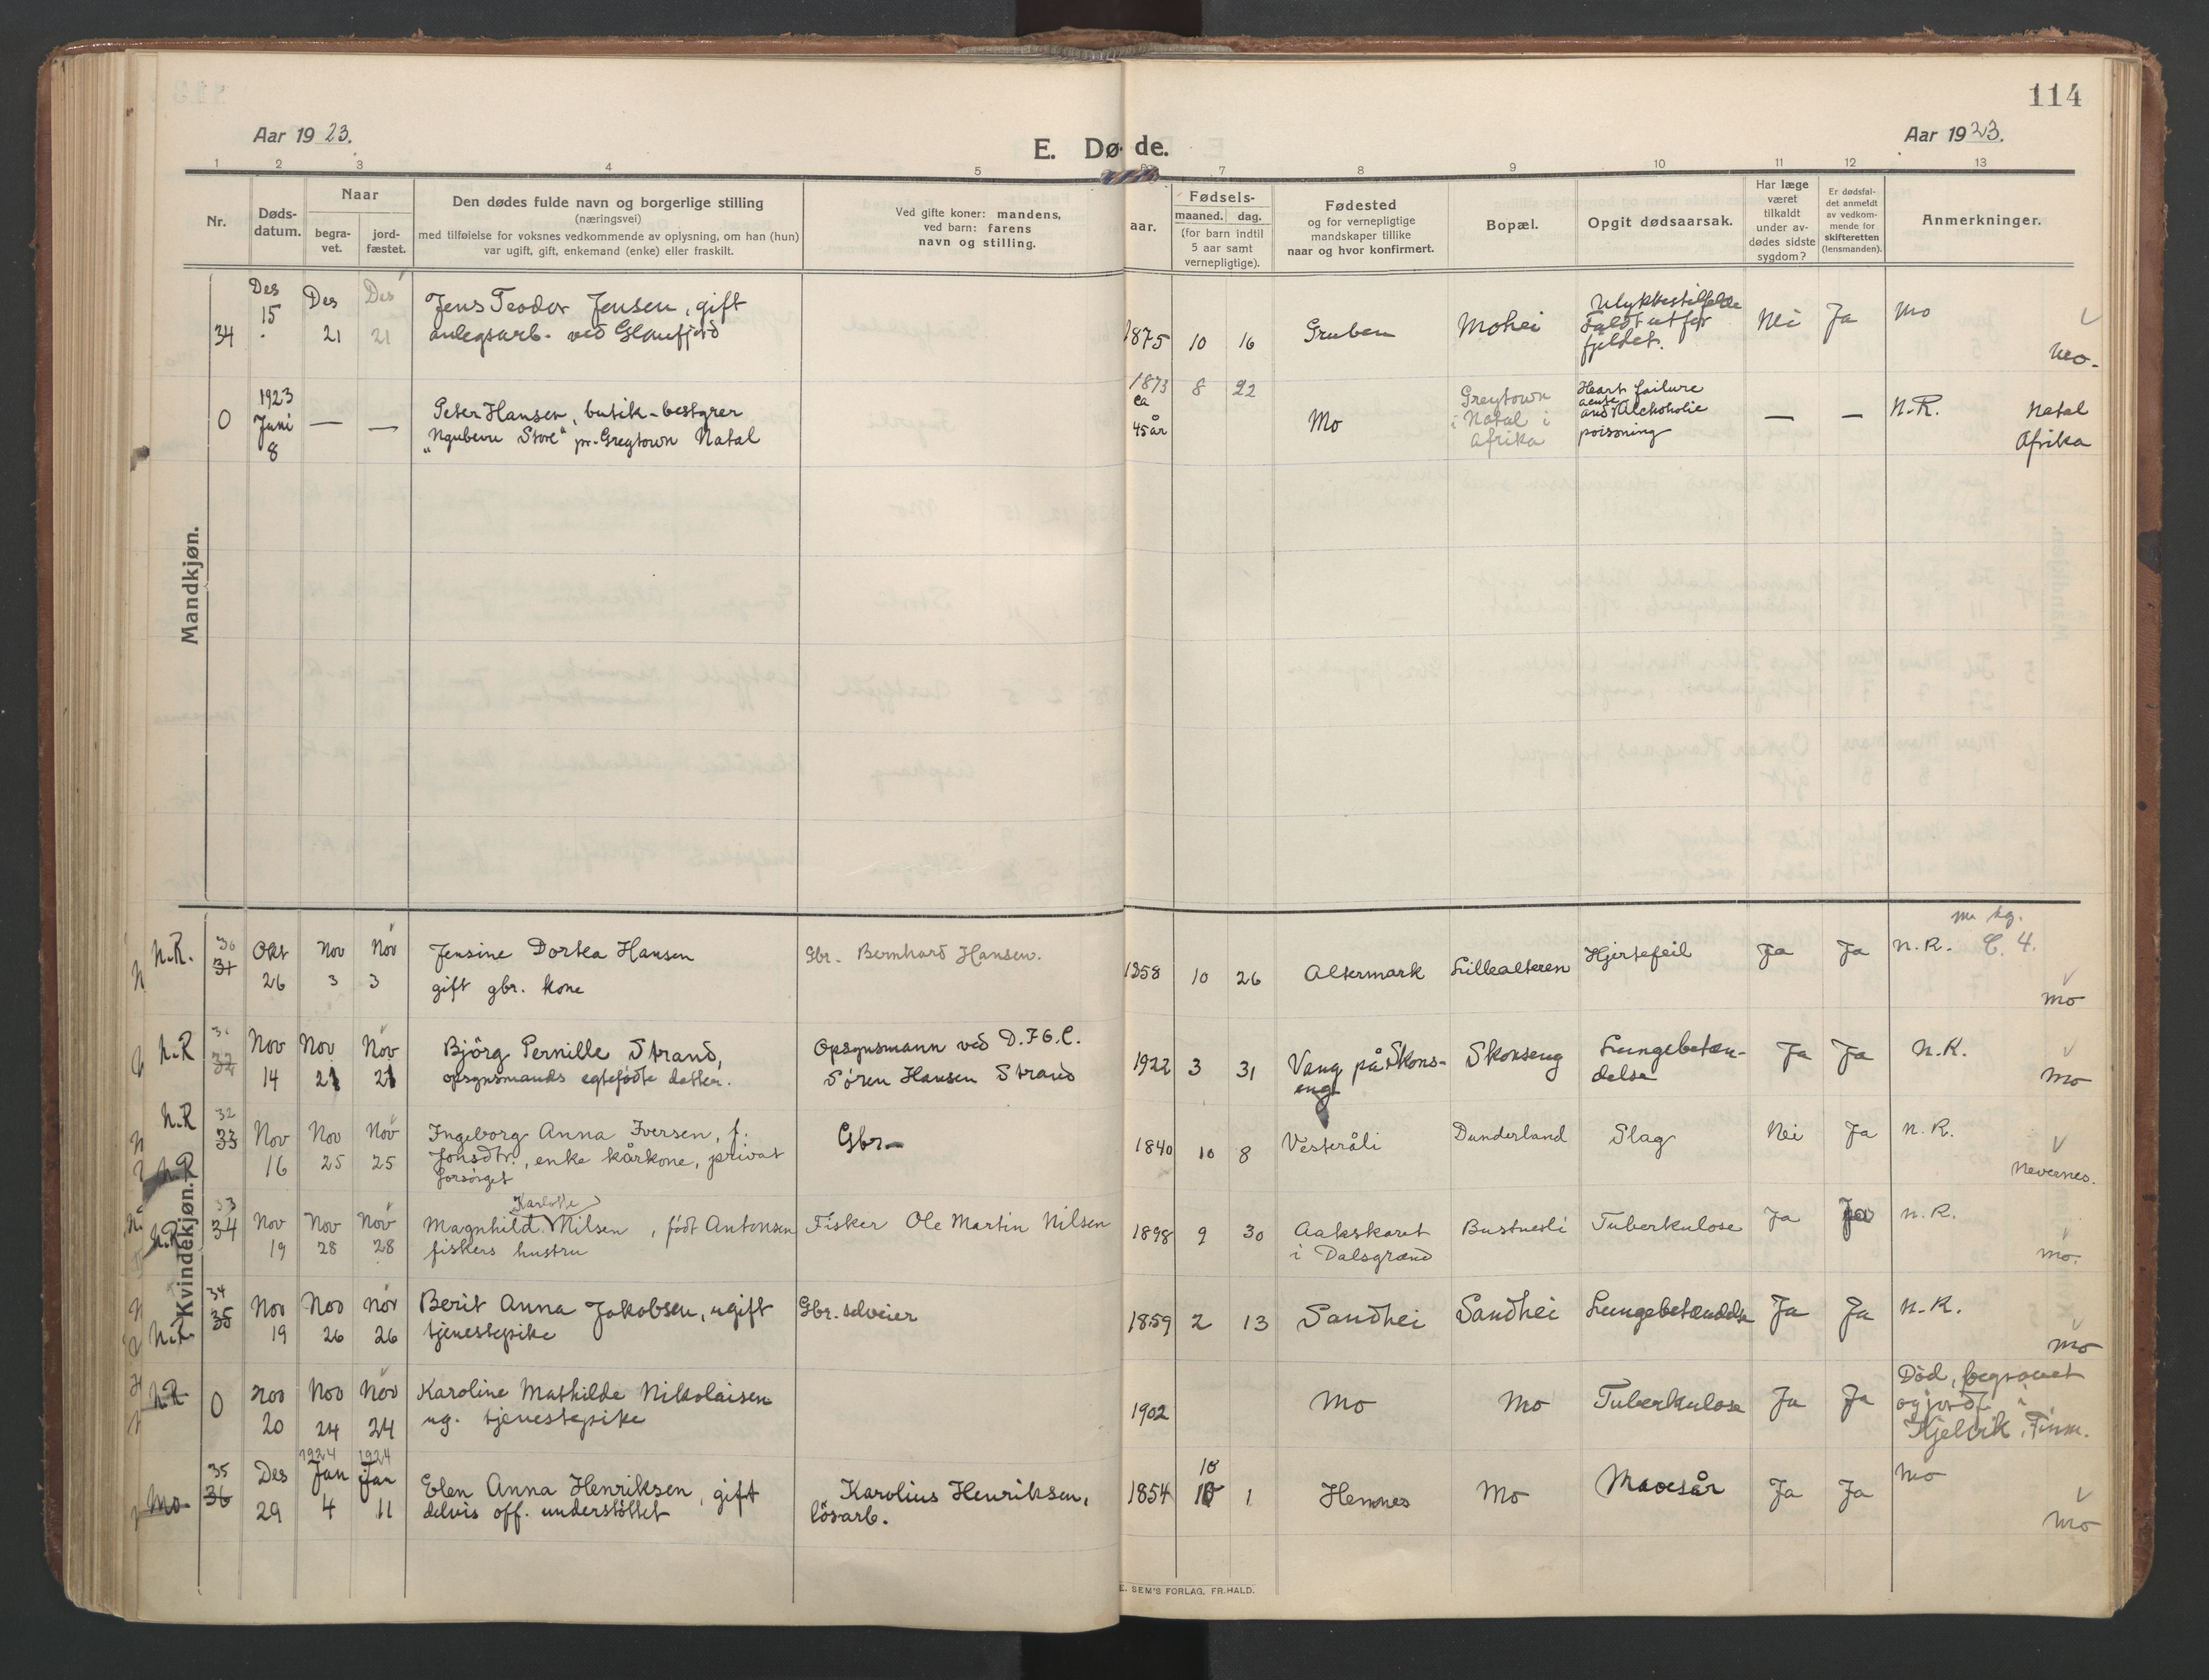 114
Aar 1923.
E. Dø- de.
Aar 1923.
1 2 3 4 5 7 8 9 10 11 12 13
Nr.
Døds-
datum.
Naar
begra-
vet.
jord-
fæstet.
Den dødes fulde navn og borgerlige stilling
(næringsvei)
med tilføielse for voksnes vedkommende av oplysning, om han (hun)
var ugift, gift, enkemand (enke) eller fraskilt.
Ved gifte koner: mandens,
ved barn: farens
navn og stilling.
aar.
Fødsels-
maaned. dag.
(for barn indtil
5 aar samt
vernepligtige).
Fødested
og for vernepligtige
mandskaper tillike
naar og hvor konfirmert.
Bopæl.
Opgit dødsaarsak.
Har læge
været
tilkaldt
under av-
dødes sidste
sygdom?
Er dødsfal-
det anmeldt
av vedkom-
mende for
skifteretten
(lensmanden).
Anmerkninger.
Mandkjøn.
34 Des 15 Des 21 Des 21
Jens Teodor Jensen, gift
anlegsarb. ved Glomfjord
1875 10 16 Gruben Mohei
Ulykkestilfelde
Faldt utfor
fjeldet.
Nei Ja Mo
Mo.
0 1923 Juni 8 — —
Peter Hansen, butik-bestyrer
"Ngubevu Store" pr. Greytown Natal
1873 8 22
ca
45 år
Mo
Greytown
i Natal i
Afrika
Heart failure
acute
and Alchoholic
poisoning
— — N.R.
Natal
Afrika
Kvindekjøn.
N.R. 30 31 Okt 26 Nov 3 Nov 3
Jensine Dortea Hansen
gift gbr. kone
Gbr. Bernhard Hansen.
1858 10 26 Altermark Lillealteren Hjertefeil Ja Ja N.R. C. 4.
Mo
N.R 31 32 Nov 14 Nov 21 Nov 21
Bjørg Pernille Strand,
opsynsmands egtefødte datter.
Opsynsmann ved D.F.G.C.
Sören Hansen Strand
1922 3 31
Vang på Skons-
eng
Skonseng
Lungebeten-
delse
Ja Ja N.R.
Mo
N.R 32 33 Nov 16 Nov 25 Nov 25
Ingeborg Anna Iversen, f.
Jonsdtr., enke kårkone, privat
forsørget
Gbr-
1840 10 8 Vesteråli Dunderland Slag Nei Ja N.R.
Nevernes.
N.R 33 34 Nov 19 Nov 28 Nov 28
Karlotte
Magnhild Nilsen, født Antonsen
fiskers hustru
Fisker Ole Martin Nilsen
1898 9 30
Aakskaret
i Dalsgrend
Bustnesli Tuberkulose Ja Ja N.R.
Mo.
N.R. 34 35 Nov 19 Nov 26 Nov 26
Berit Anna Jakobsen, ugift
tjenestepike
Gbr. selveier
1859 2 13 Sandhei Sandhei Lungebetændelse Ja Ja N.R.
Mo
N.R 0 Nov 20 Nov 24 Nov 24
Karoline Mathilde Nikolaisen
ug. tjenestepike
1902 Mo Mo Tuberkulose Ja Ja
Död, begravet
og jordf. i
Kjelvik, Finm.
Mo 35 36 Des 29 1924 Jan 4 1924 Jan 11
Elen Anna Henriksen, gift
delvis off. understöttet
Karolius Henriksen,
lösarb.
1854 10 1 Hemnes Mo Mavesår Ja Ja Mo
Mo
E. SEM'S FORLAG, FR.HALD.